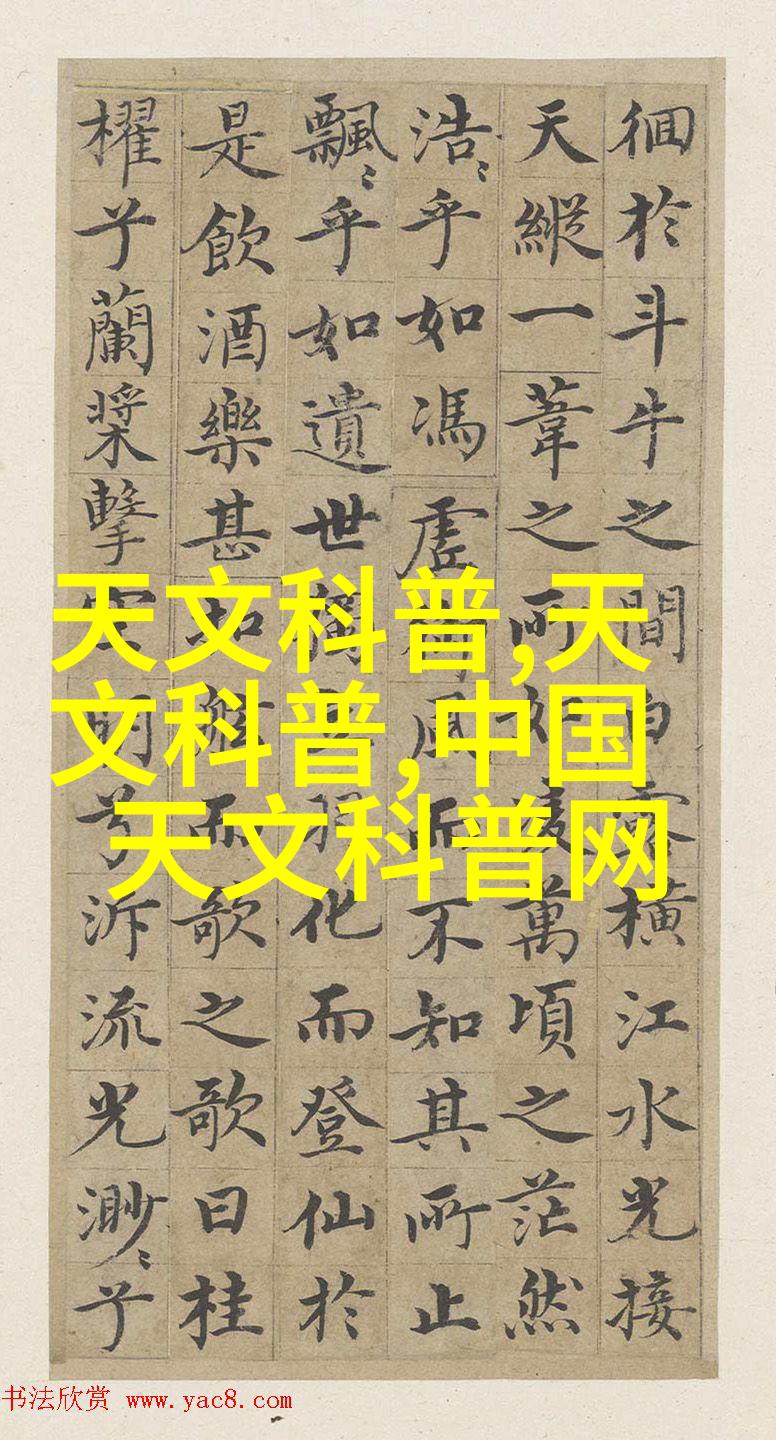 徊於斗牛之間白露橫江水光接
天縱一葦之所如凌萬頃之茫然
浩〻乎如馮虛御風而不知其所止
飄〻乎如遺世獨立羽化而登仙於
是飲酒樂甚扣舷而歌之歌曰桂
櫂兮蘭槳擊空明兮泝流光渺〻兮
天文科普,天
文科普,中国
天文科普网
书法欣赏 www.yac8.com